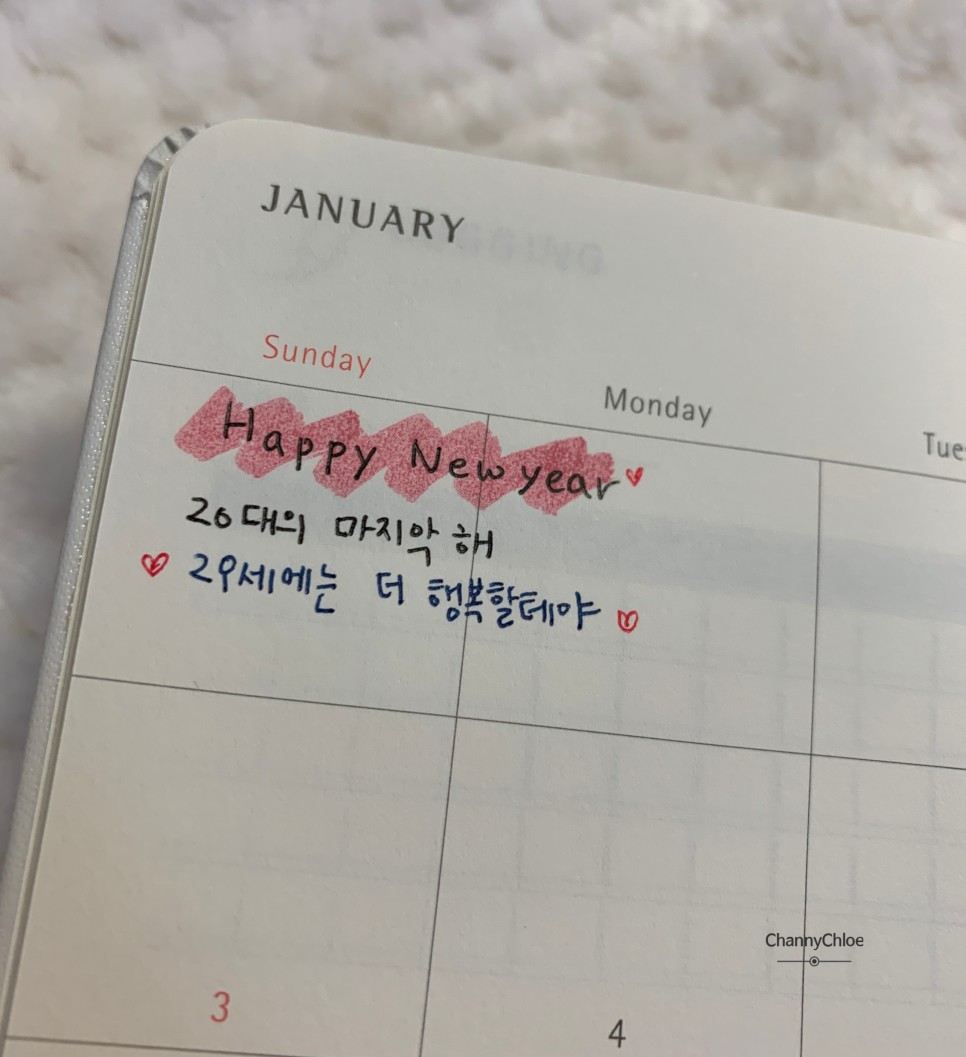 JANUARY
Sunday Monday Tue
Happy New year
20대의 마지막 해
29세에는 더 행복할테야
3 4
ChannyChloe